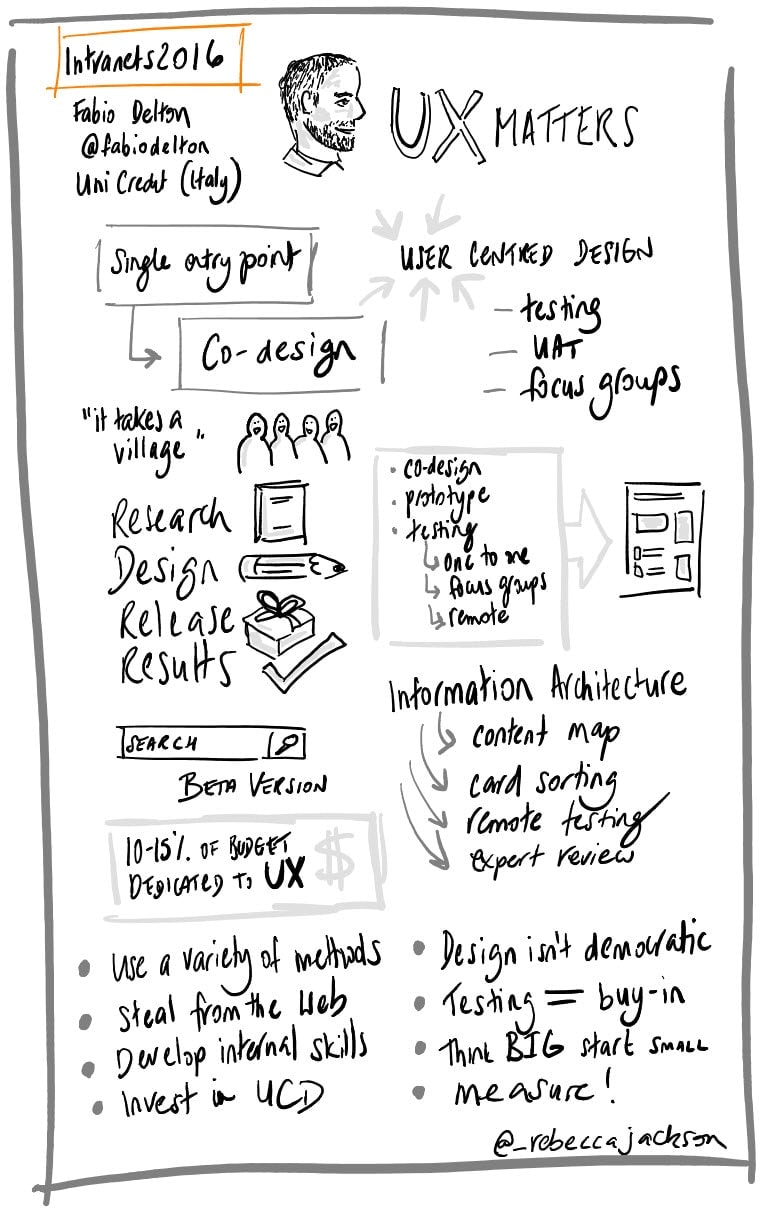 Intranets2016
Fabio Delton
@fabiodelton
Uni Credit (Italy)
UX MATTERS
Single entry point
Co-design
USER CENTRED DESIGN
– testing
– UAT
– focus groups
"it takes a
village"
Research
Design
Release
Results
• co-design
• prototype
• testing
one to one
focus groups
remote
SEARCH
BETA VERSION
10-15% OF BUDGET
DEDICATED TO UX
$
Information Architecture
content map
card sorting
remote testing
expert review
• Use a variety of methods
• Steal from the Web
• Develop internal skills
• Invest in UCD
• Design isn't democratic
• Testing = buy-in
• Think BIG start SMALL
• measure!
@_rebeccajackson